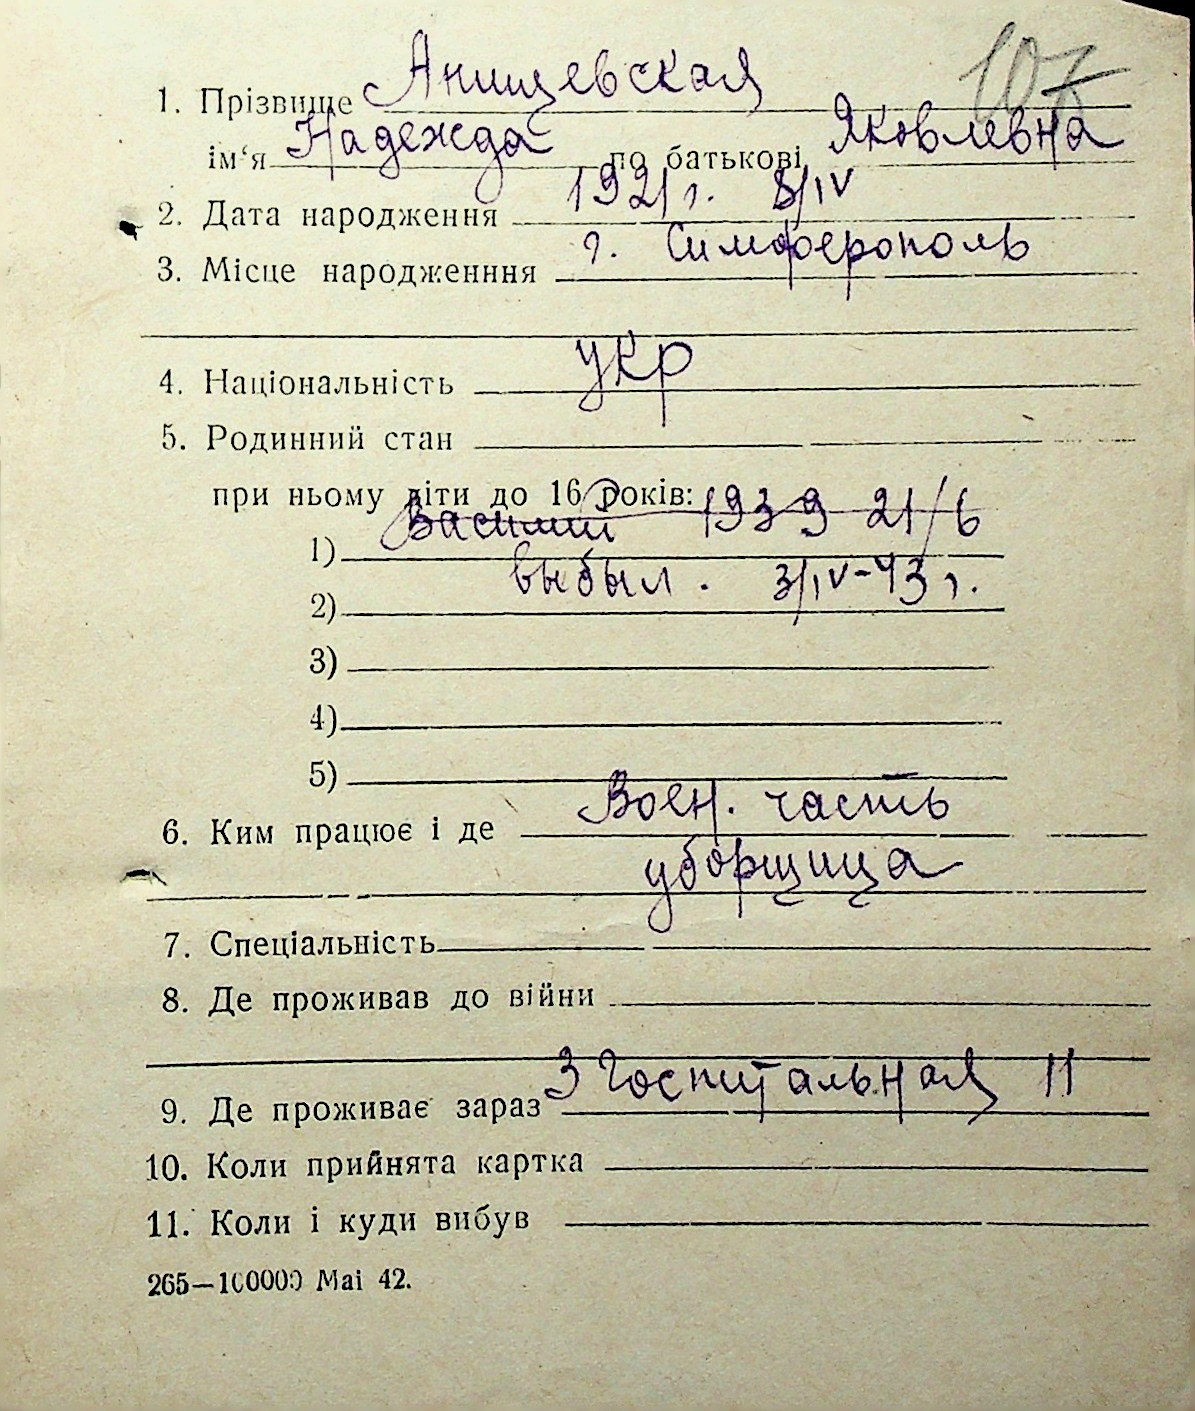 107
1. Прізвище Анищевская
ім‘я Надежда по батькові Яковлевна
2. Дата народження 1921 г. 8/IV
3. Місце народженння г. Симферополь
4. Національність укр
5. Родинний стан
при ньому діти до 16 років:
1) Василий 1939 21/6
2) выбыл. 3/IV-43 г.
3)
4)
5)
6. Ким працює і де Воен. часть
уборщица
7. Спеціальність
8. Де проживав до війни
9. Де проживає зараз 3 Госпитальная 11
10. Коли прийнята картка
11. Коли і куди вибув
265—100000 Mai 42.